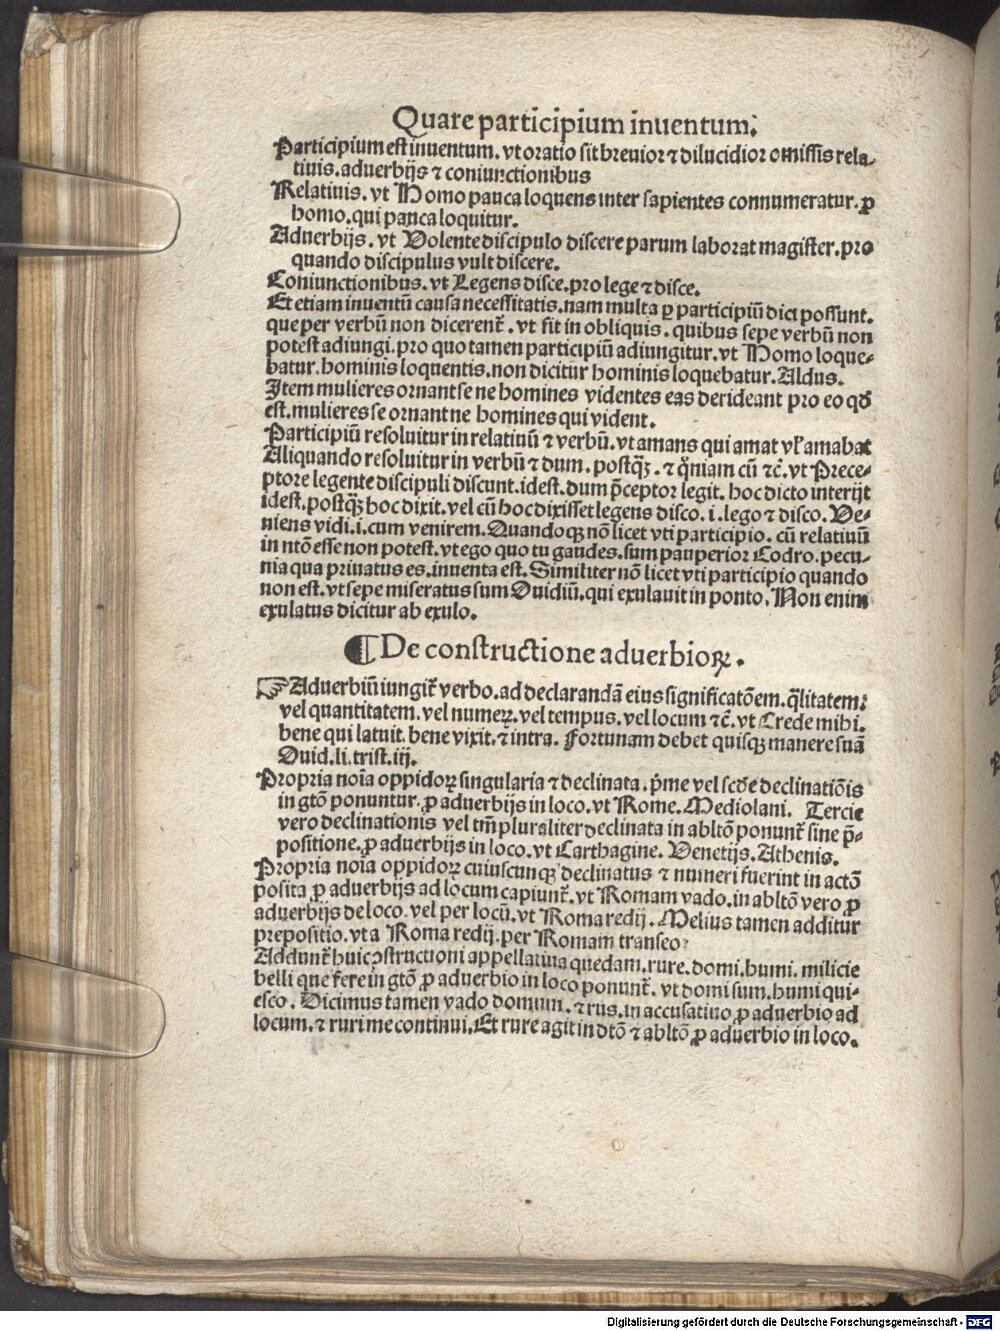 Quare participium inuentum.
Participium est inuentum. vt oratio sit breuior ⁊ dilucidior omissis rela-
tiuis. aduerbijs ⁊ coniunctionibus
Relatiuis. vt Homo pauca loquens inter sapientes connumeratur. ꝓ
homo. qui pauca loquitur.
Aduerbijs. vt Volente discipulo discere parum laborat magister. pro
quando discipulus vult discere.
Coniunctionibus. vt Legens disce. pro lege ⁊ disce.
Et etiam inuentū causa necessitatis. nam multa ꝑ participiū dici possunt.
que per verbū non dicerent᷑. vt fit in obliquis. quibus sepe verbū non
potest adiungi. pro quo tamen participiū adiungitur. vt Homo loque-
batur. hominis loquentis. non dicitur hominis loquebatur. Aldus.
Item mulieres ornant se ne homines videntes eas derideant pro eo qđ
est. mulieres se ornant ne homines qui vident.
Participiū resoluitur in relatiuū ⁊ verbū. vt amans qui amat vl' amabat
Aliquando resoluitur in verbū ⁊ dum. postqꝫ. ⁊ qm̄niam cū ⁊c̄. vt Prece-
ptore legente discipuli discunt. idest. dum p̄ceptor legit. hoc dicto interijt
idest. postqꝫ hoc dixit. vel cū hoc dixisset legens disco. i. lego ⁊ disco. Ve-
niens vidi. i. cum venirem. Quandoqꝫ nō licet vti participio. cū relatiuū
in ntō esse non potest. vt ego quo tu gaudes. sum pauperior Codro. pecu-
nia qua priuatus es. inuenta est. Similiter nō licet vti participio quando
non est. vt sepe miseratus sum Ouidiū. qui exulauit in ponto. Non enim
exulatus dicitur ab exulo.
¶ De constructione aduerbioꝝ.
☞ Aduerbiū iungit᷑ verbo. ad declarandā eius significatōem. q̄litatem:
vel quantitatem. vel numeꝝ. vel tempus. vel locum ⁊c̄. vt Crede mihi.
bene qui latuit. bene vixit. ⁊ intra. Fortunam debet quisqꝫ manere suā
Ouid. li. trist. iij.
Propria noīa oppidoꝝ singularia ⁊ declinata. p̄me vel scđe declinatiōis
in gtō ponuntur. ꝓ aduerbijs in loco. vt Rome. Mediolani. Tercie
vero declinationis vel tm̄ pluraliter declinata in abltō ponunt᷑ sine p̄-
positione. ꝓ aduerbijs in loco. vt Carthagine. Venetijs. Athenis.
Propria noīa oppidoꝝ cuiuscunqꝫ declinatus ⁊ numeri fuerint in actō
posita ꝓ aduerbijs ad locum capiunt᷑. vt Romam vado. in abltō vero ꝓ
aduerbijs de loco. vel per locū. vt Roma redij. Melius tamen additur
prepositio. vt a Roma redij. per Romam transeo:
Addunt᷑ huic ꝯstructioni appellatiua quedam. rure. domi. humi. milicie
belli que fere in gtō ꝓ aduerbio in loco ponunt᷑. vt domi sum. humi qui-
esco. Dicimus tamen vado domum. ⁊ rus. in accusatiuo ꝓ aduerbio ad
locum. ⁊ ruri me continui. Et rure agit in dtō ⁊ abltō ꝓ aduerbio in loco.
Digitalisierung gefördert durch die Deutsche Forschungsgemeinschaft - DFG